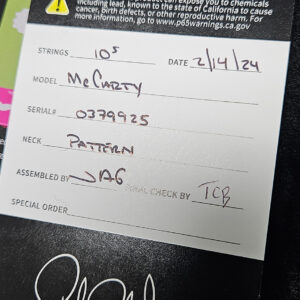 can expose you to chemicals
including lead, known to the state of California to cause
cancer, birth defects, or other reproductive harm. For
more information, go to www.p65warnings.ca.gov
STRINGS 10s DATE 2/14/24
MODEL McCARTY
SERIAL# 0379925
NECK PATTERN
ASSEMBLED BY JAG FINAL CHECK BY TCB
SPECIAL ORDER